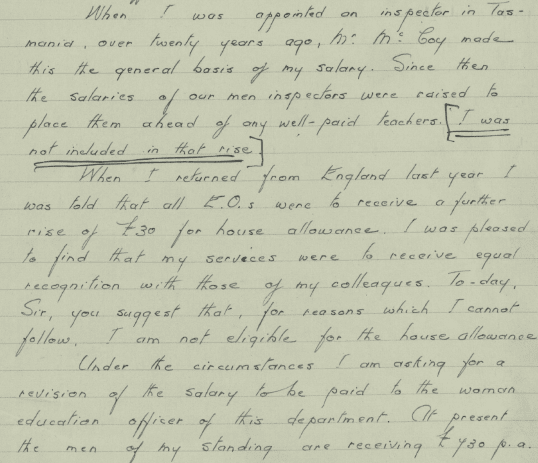 When I was appointed an inspector in Tas-
mania, over twenty years ago, Mr. McCoy made
this the general basis of my salary. Since then
the salaries of our men inspectors were raised to
place them ahead of any well-paid teachers. [I was
not included in that rise]
When I returned from England last year I
was told that all E.O.s were to receive a further
rise of £30 for house allowance. I was pleased
to find that my services were to receive equal
recognition with those of my colleagues. To-day,
Sir, you suggest that, for reasons which I cannot
follow, I am not eligible for the house allowance
Under the circumstances I am asking for a
revision of the salary to be paid to the woman
education officer of this department. At present
the men of my standing are receiving £730 p.a.